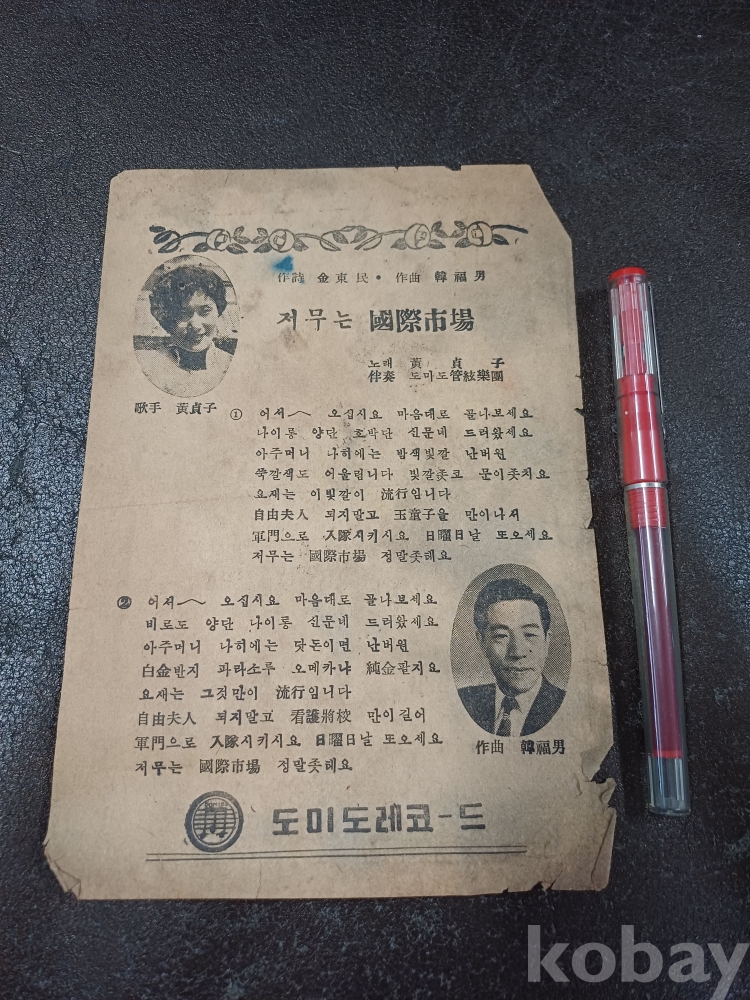 作詩 金東民 • 作曲 韓福男
저무는 國際市場
노래 黃貞子
伴奏 도미도管絃樂團
歌手 黃貞子
① 어서〜 오십시요 마음대로 골나보세요
나이롱 양단 호박단 신문네 드려왔세요
아주머니 나히에는 밤색빛깔 난버원
쑥깔색도 어울립니다 빛깔좃코 문이좃치요
요새는 이빛깔이 流行입니다
自由夫人 되지말고 玉童子을 만이나서
軍門으로 入隊시키시요 日曜日날 또오세요
저무는 國際市場 정말좃테요
② 어서〜 오십시요 마음대로 골나보세요
비로도 양단 나이롱 신문네 드려왔세요
아주머니 나히에는 닷돈이면 난버원
白金반지 파라소루 오메카냐 純金팔지요
요새는 그것만이 流行입니다
自由夫人 되지말고 看護將校 만이길어
軍門으로 入隊시키시요 日曜日날 또오세요
저무는 國際市場 정말좃테요
作曲 韓福男
도미도레코-드
kobay